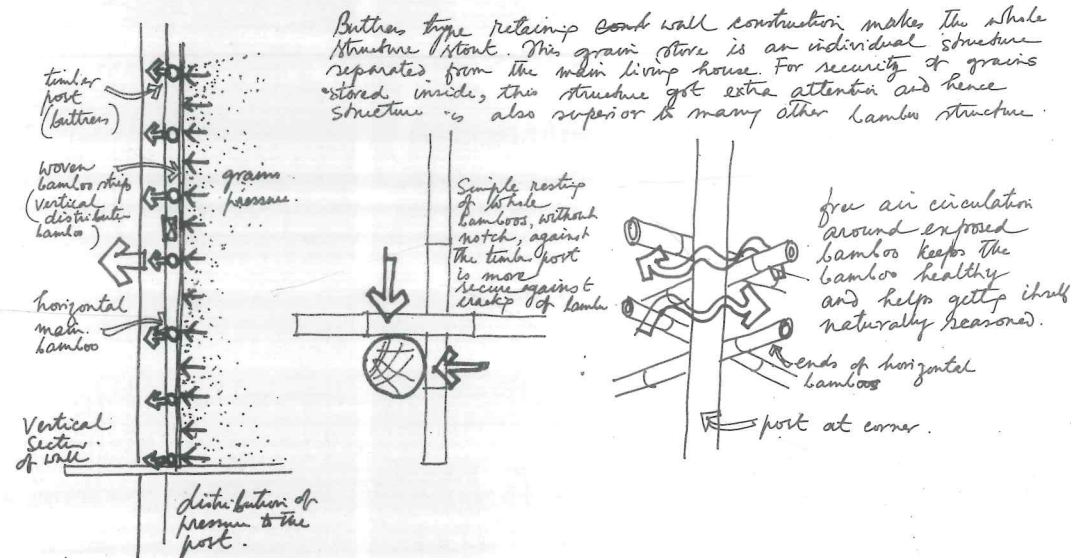 Buttress type retaining wall construction makes the whole
structure stout. This grain store is an individual structure
separated from the main living house. For security of grains
stored inside, this structure got extra attention and hence
structure is also superior to many other bamboo structure.
timber
post
(buttress)
woven
bamboo strip
(vertical
distribution
bamboo)
grains
pressure.
horizontal
main
bamboo
Vertical
Section
of wall
distribution of
pressure to the
post.
Simple resting
of whole
bamboos, without
notch, against
the timber post
is more
secure against
cracking of bamboo
free air circulation
around exposed
bamboo keeps the
bamboo healthy
and helps getting itself
naturally seasoned.
ends of horizontal
bamboos
post at corner.